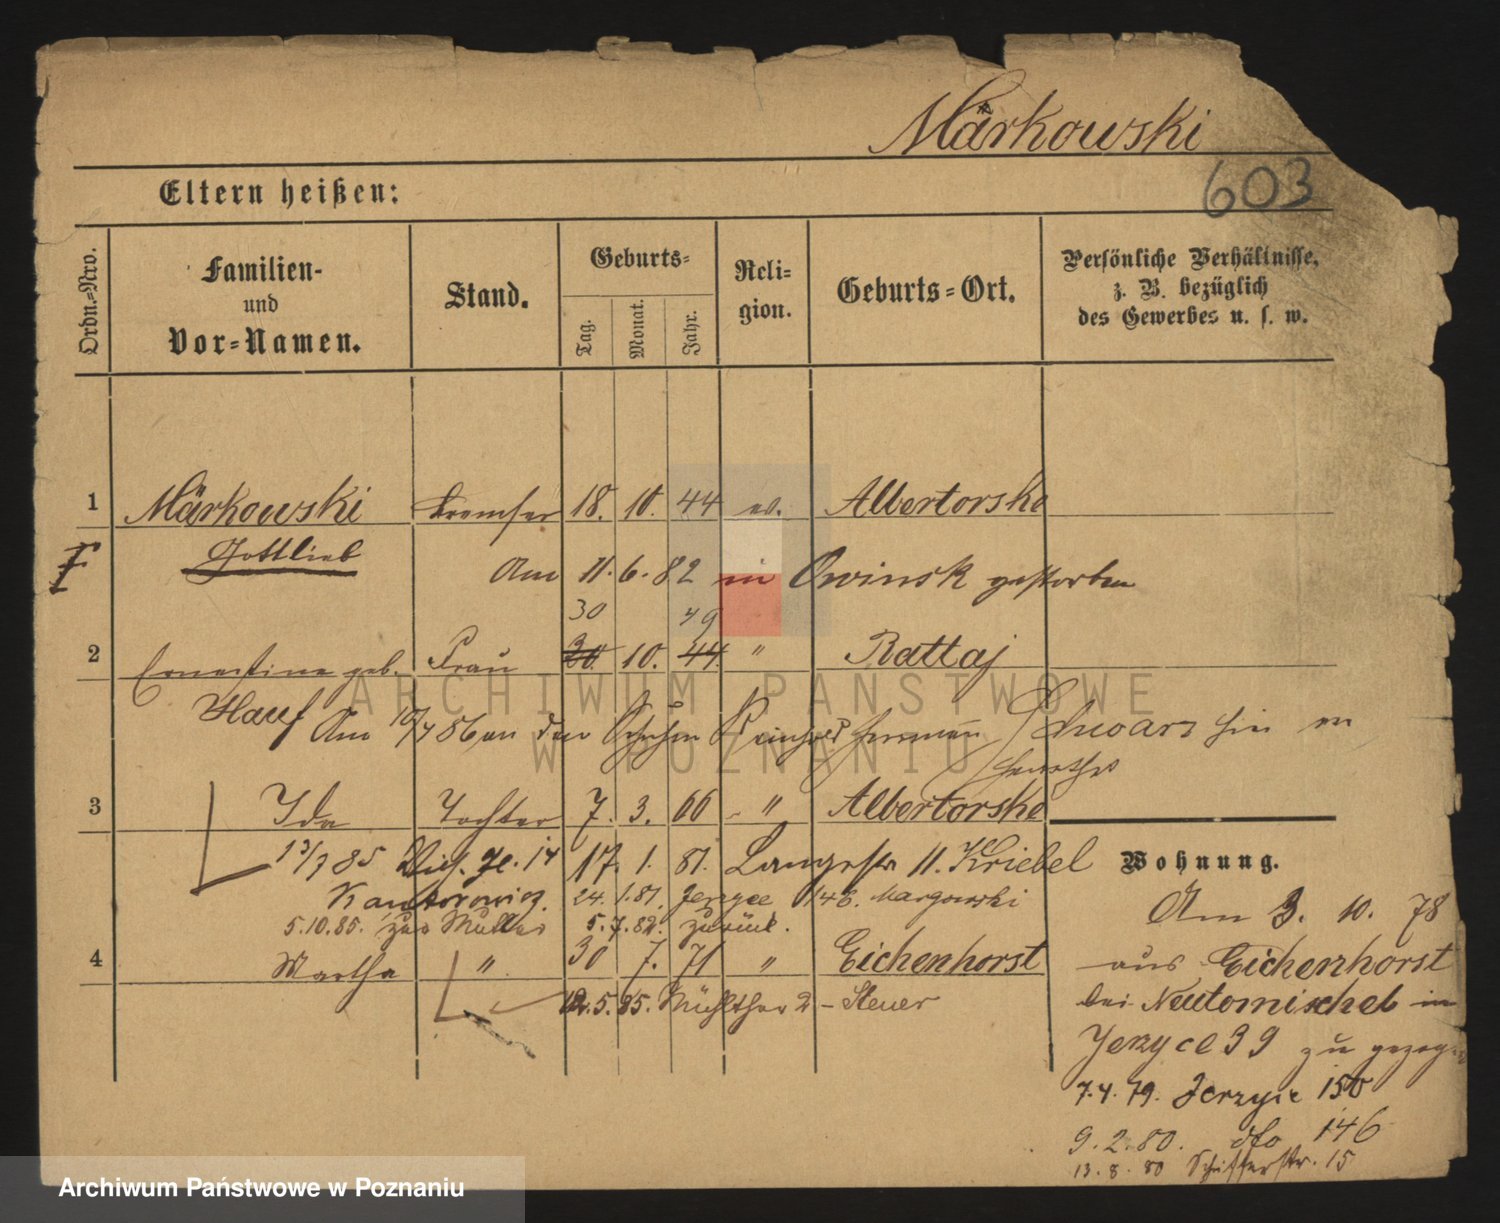 Märkowski
603
Eltern heißen:
Ordn.=Nro.
Familien-
und
Vor=Namen.
Stand.
Geburts=
Tag.
Monat.
Jahr.
Reli=
gion.
Geburts=Ort.
Persönliche Verhältnisse,
z. B. bezüglich
des Gewerbes u. s. w.
1 Märkowski 18. 10. 44 ev. Albertorske
Gottlieb
Am 11. 6. 82 in Owinsk gestorben
30 49
2 Ernestine geb. Frau 10. 44 " Rattaj
Hauf
Am 10/7 86 an den Reinhold Hermann Schwarz
3 Ida Tochter 7. 3. 66 " Albertorske
13/7 85 14 17. 1. 81. Langestr 11. Kriebel
Kantorowicz. 24. 1. 81. Jerzyce 146. Margowski
5.10.85. zur Mutter 5. 7. 82. zurück.
4 Martha " 30 7. 71 " Eichenhorst
12. 5. 85. Mühlthor 2 - Steuer
Wohnung.
Am 3. 10. 78
aus Eichenhorst
bei Neutomischel in
Jerzyce 39 zu gezogen
7. 4. 79. Jerzyce 150
9. 2. 80. dto 146
13. 8. 80 Schifferstr. 15
ARCHIWUM PAŃSTWOWE
W POZNANIU
Archiwum Państwowe w Poznaniu